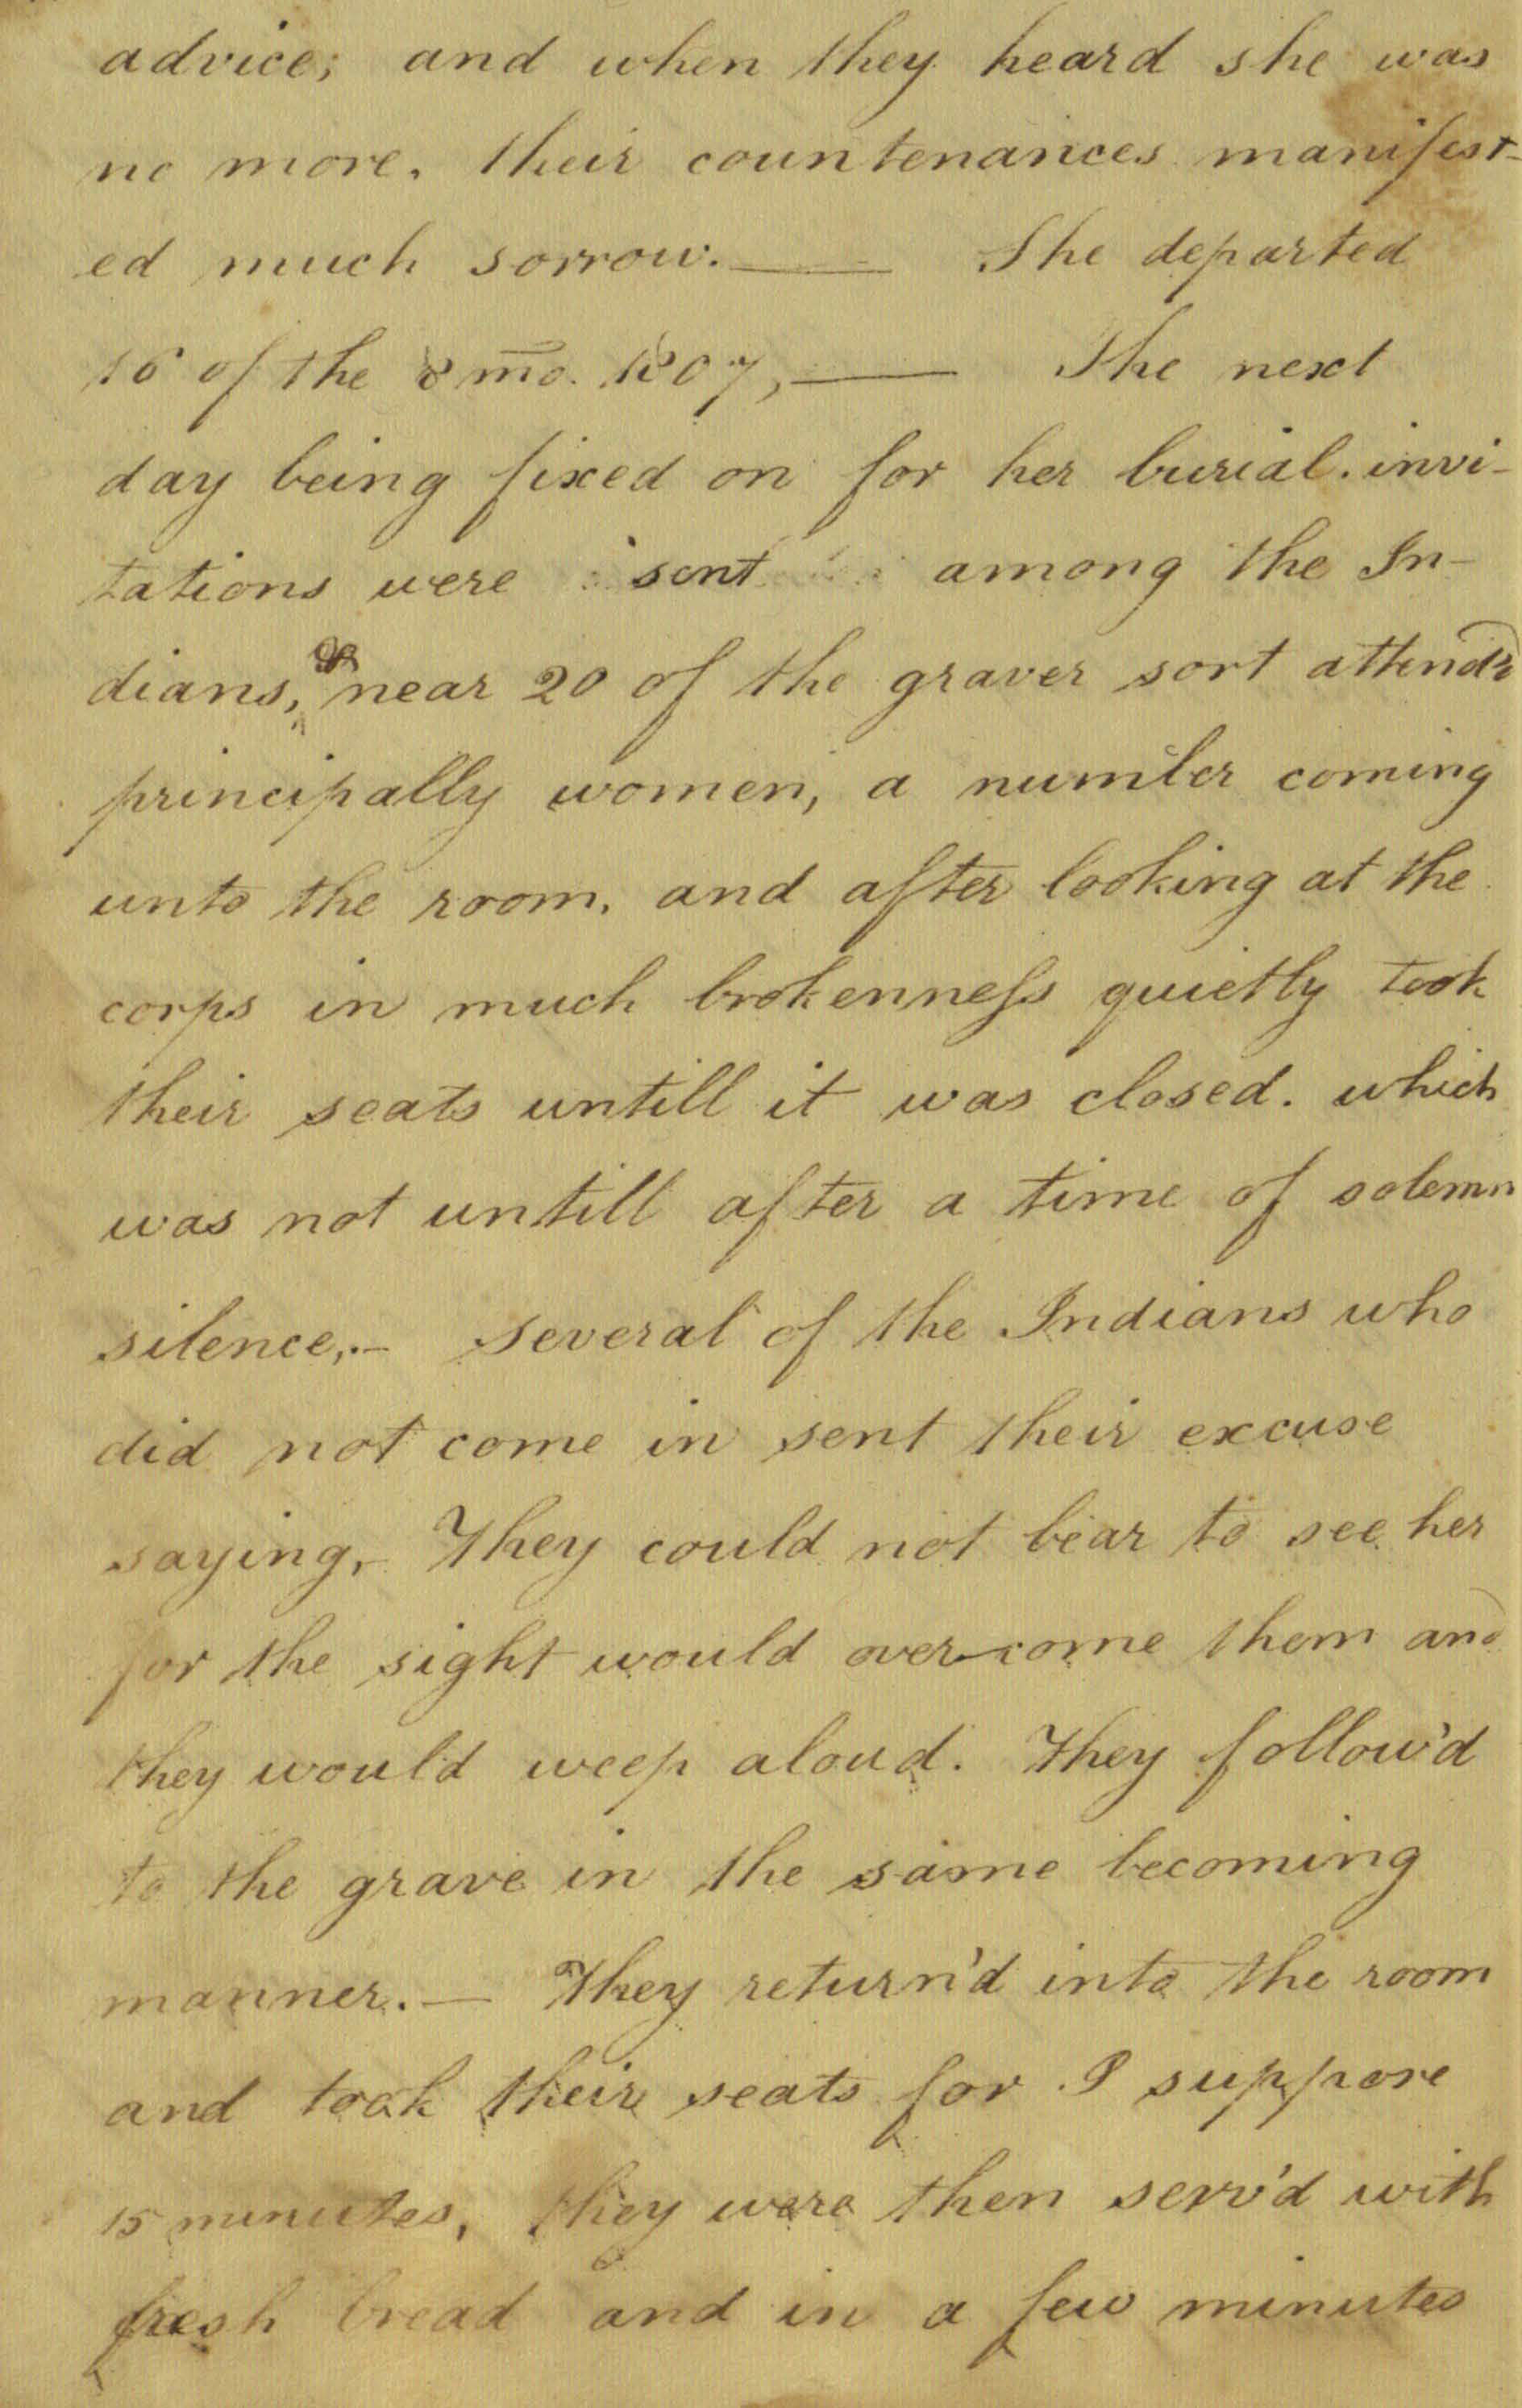 advice; and when they heard she was
no more, their countenances manifest-
ed much sorrow. — She departed
16 of the 8 mo. 1807, — The next
day being fixed on for her burial. invi-
tations were sent among the In-
dians, & near 20 of the graver sort attend'd
principally women, a number coming
unto the room, and after looking at the
corps in much brokenness quietly took
their seats untill it was closed. which
was not untill after a time of solemn
silence,.- several of the Indians who
did not come in sent their excuse
saying, They could not bear to see her
for the sight would over-come them and
they would weep aloud. They follow'd
to the grave in the same becoming
manner. — They return'd into the room
and took their seats for I suppose
15 minutes, they were then serv'd with
fresh bread and in a few minutes